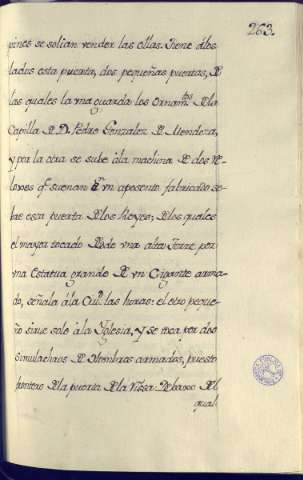 263.
vines se solian vender las ollas. tiene álos
lados esta puerta, dos pequeñas puertas, de
las quales la vna guarda los Ornam.tos de la
Capilla de D. Pedro Gonzalez de Mendoza,
y por la otra se sube ála machina de dos Re-
loxes q.e suenan en vn aposento fabricado so-
bre esta puerta de los Reyes; de los quales
el mayor tocado desde vna alta Torre por
vna Estatua grande de vn Gigante arma-
do, señala ála Ciu.d las horas: el otro peque-
ño sirue solo ála Yglesia, y se toca por dos
simulachros de Hombres armados, puesto
frontero de la puerta de la Debaxo del
qual